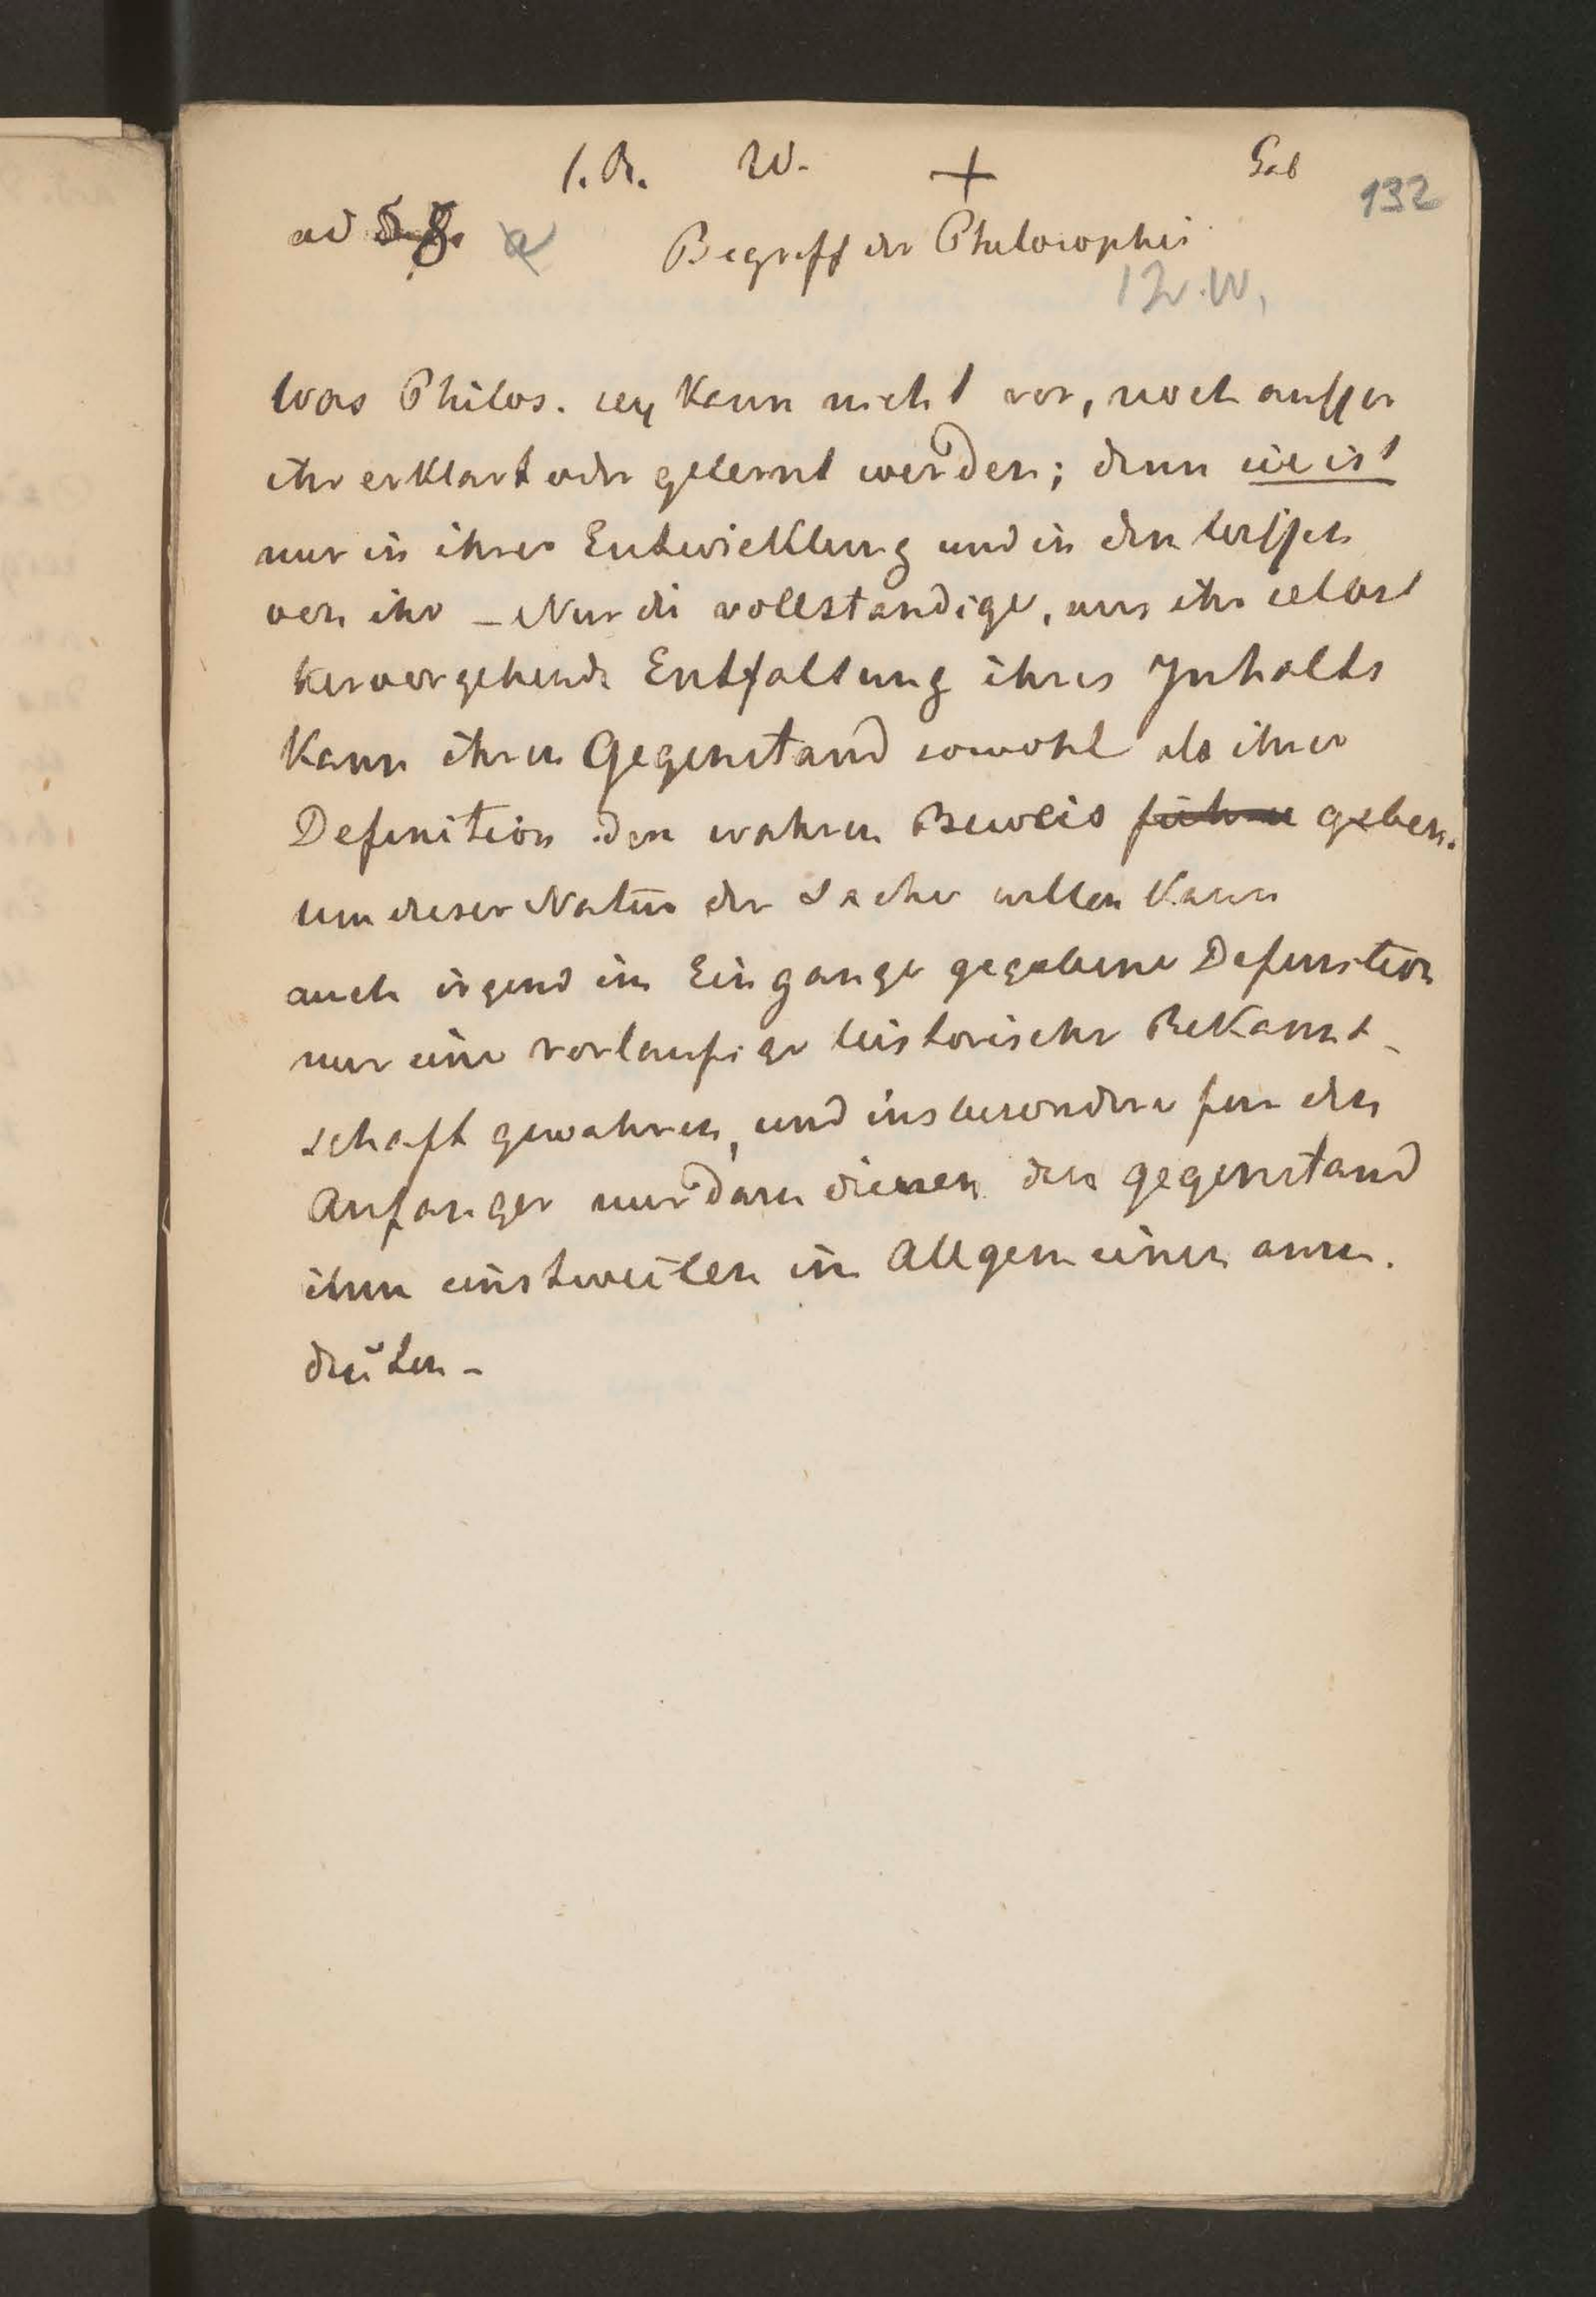 W. + Gab
132
ad § 8 a Begriff der Philosophie
12. W.
Was Philos. sey kann nicht vor, noch ausser
ihr erklart oder gelernt werden; denn sie ist
nur in ihrer Entwicklung und in dem wissen
von ihr – Nur die vollstandige, aus ihr selbst
hervorgehende Entfaltung ihres Inhalts
kann ihren Gegenstand sowohl als ihrer
Definition den wahren Beweis führen geben.
um dieser Natur der Sache willen kann
auch irgend im Eingange gegebene Definition
nur eine vorlaufige historische Bekannt-
schaft gewahren, und insbesondere fur den
Anfanger nur dazu dienen den gegenstand
ihm einstweilen im Allgemeinen anzu.
deuten –